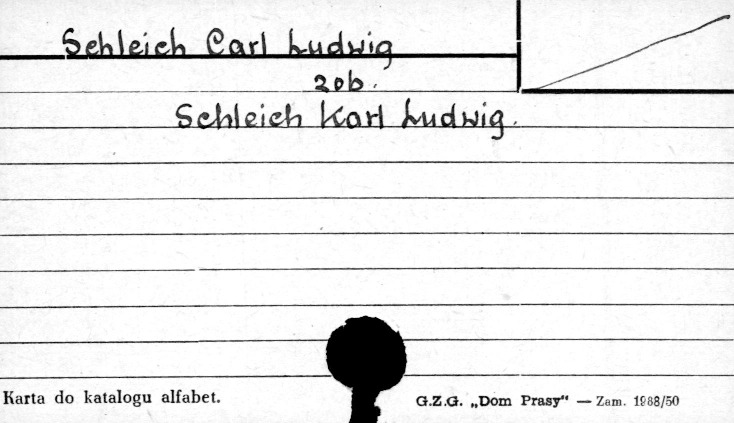 Schleich Carl Ludwig
zob.
Schleich Karl Ludwig.
Karta do katalogu alfabet.
G.Z.G. „Dom Prasy" — Zam. 1988/50